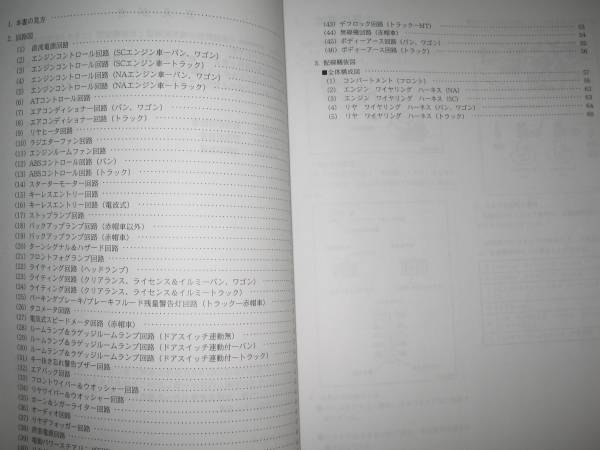 1. 本書の見方
2. 回路図
(1) 直流電源回路
(2) エンジンコントロール回路（SCエンジン車ーバン、ワゴン）
(3) エンジンコントロール回路（SCエンジン車ートラック）
(4) エンジンコントロール回路（NAエンジン車ーバン、ワゴン）
(5) エンジンコントロール回路（NAエンジン車ートラック）
(6) ATコントロール回路
(7) エアコンディショナー回路（バン、ワゴン）
(8) エアコンディショナー回路（トラック）
(9) リヤヒータ回路
(10) ラジエターファン回路
(11) エンジンルームファン回路
(12) ABSコントロール回路（バン）
(13) ABSコントロール回路（トラック）
(14) スターターモーター回路
(15) キーレスエントリー回路
(16) キーレスエントリー回路（電波式）
(17) ストップランプ回路
(18) バックアップランプ回路（赤帽車以外）
(19) バックアップランプ回路（赤帽車）
(20) ターンシグナル＆ハザード回路
(21) フロントフォグランプ回路
(22) ライティング回路（ヘッドランプ）
(23) ライティング回路（クリアランス、ライセンス＆イルミーバン、ワゴン）
(24) ライティング回路（クリアランス、ライセンス＆イルミートラック）
(25) パーキングブレーキ/ブレーキフルード残量警告灯回路（トラックー赤帽車）
(26) タコメータ回路
(27) 電気式スピードメータ回路（赤帽車）
(28) ルームランプ＆ラゲッジルームランプ回路（ドアスイッチ連動無）
(29) ルームランプ＆ラゲッジルームランプ回路（ドアスイッチ連動付ーバン）
(30) ルームランプ＆ラゲッジルームランプ回路（ドアスイッチ連動付ートラック）
(31) キー抜き忘れ警告ブザー回路
(32) エアバック回路
(33) フロントワイパー＆ウオッシャー回路
(34) リヤワイパー＆ウオッシャー回路
(35) ホーン＆シガーライター回路
(36) オーディオ回路
(37) リヤデフォッガー回路
(38) 電源回路
(39) 電動パワーステアリン
(43) デフロック回路（トラックーMT） 53
(44) 無線機回路（赤帽車） 54
(45) ボディーアース回路（バン、ワゴン） 55
(46) ボディーアース回路（トラック） 56
3. 配線構成図
■全体構成図 57
(1) コンパートメント（フロント）
(2) エンジン ワイヤリング ハーネス（NA） 62
(3) エンジン ワイヤリング ハーネス（SC） 63
(4) リヤ ワイヤリング ハーネス（バン、ワゴン）
(5) リヤ ワイヤリング ハーネス（トラック）